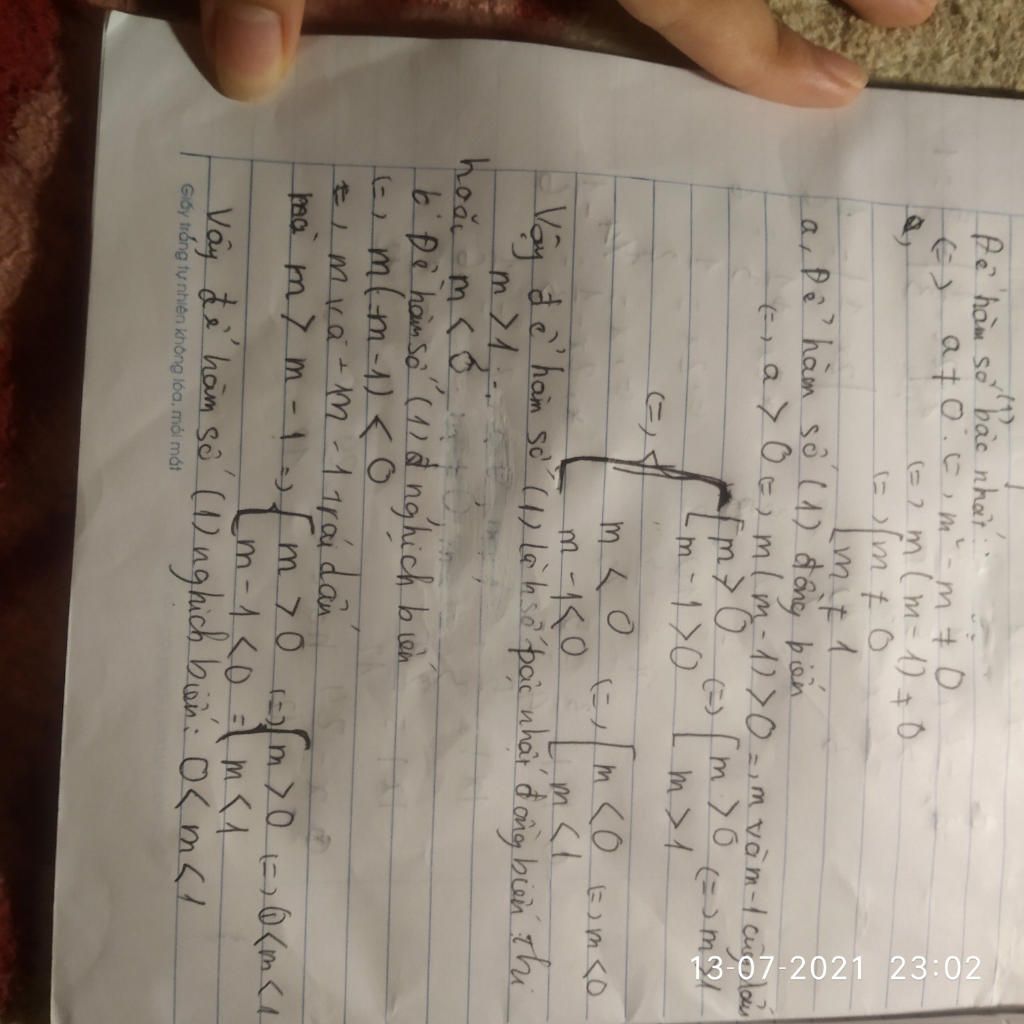 Để hàm số (1) bậc nhất:
(=) a ≠ 0 (=, m² - m ≠ 0
(=, m(m-1) ≠ 0
(=, [ m ≠ 0
m ≠ 1
a, Để hàm số (1) đồng biến
(=, a > 0 (=, m(m-1) > 0 =, m và m-1 cùng dấu
[ m > 0 (=) [ m > 0 (=) m > 1
[ m - 1 > 0 [ m > 1
(=,
m < 0 (=, [ m < 0 (=, m < 0
m - 1 < 0 [ m < 1
Vậy để hàm số (1) là hsố bậc nhất đồng biến thì
m > 1
hoặc m < 0
b, Để hàm số (1) nghịch biến
(=, m(m-1) < 0
=, m và m-1 trái dấu
mà m > m - 1 =, { m > 0 (=, { m > 0 (=, 0 < m < 1
{ m - 1 < 0 = { m < 1
Vậy để hàm số (1) nghịch biến: 0 < m < 1
Giấy trắng tự nhiên không lóa, mỏi mắt
13-07-2021 23:02